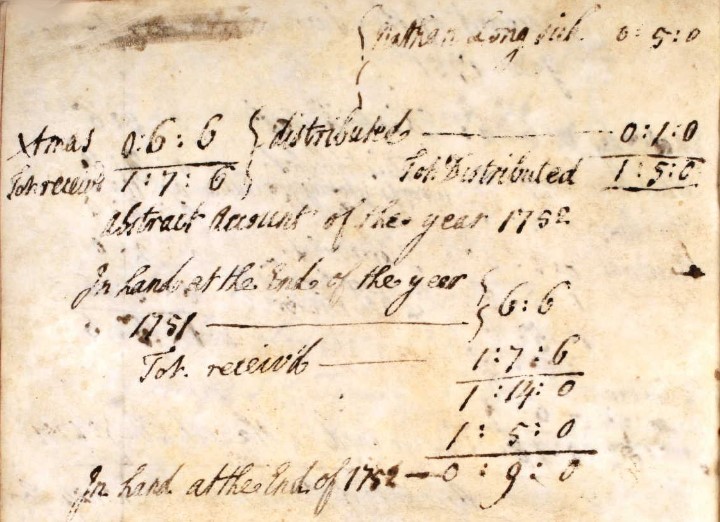 Nathan Long sick 0:5:0
Xtmas 0:6:6 distributed 0:1:0
Tot. receivd 1:7:6 Tot. Distributed 1:5:0
Abstract Account of the year 1752
In hand at the End of the year
1751 6:6
Tot. receivd 1:7:6
1:14:0
1:5:0
In hand at the End of 1752 0:9:0